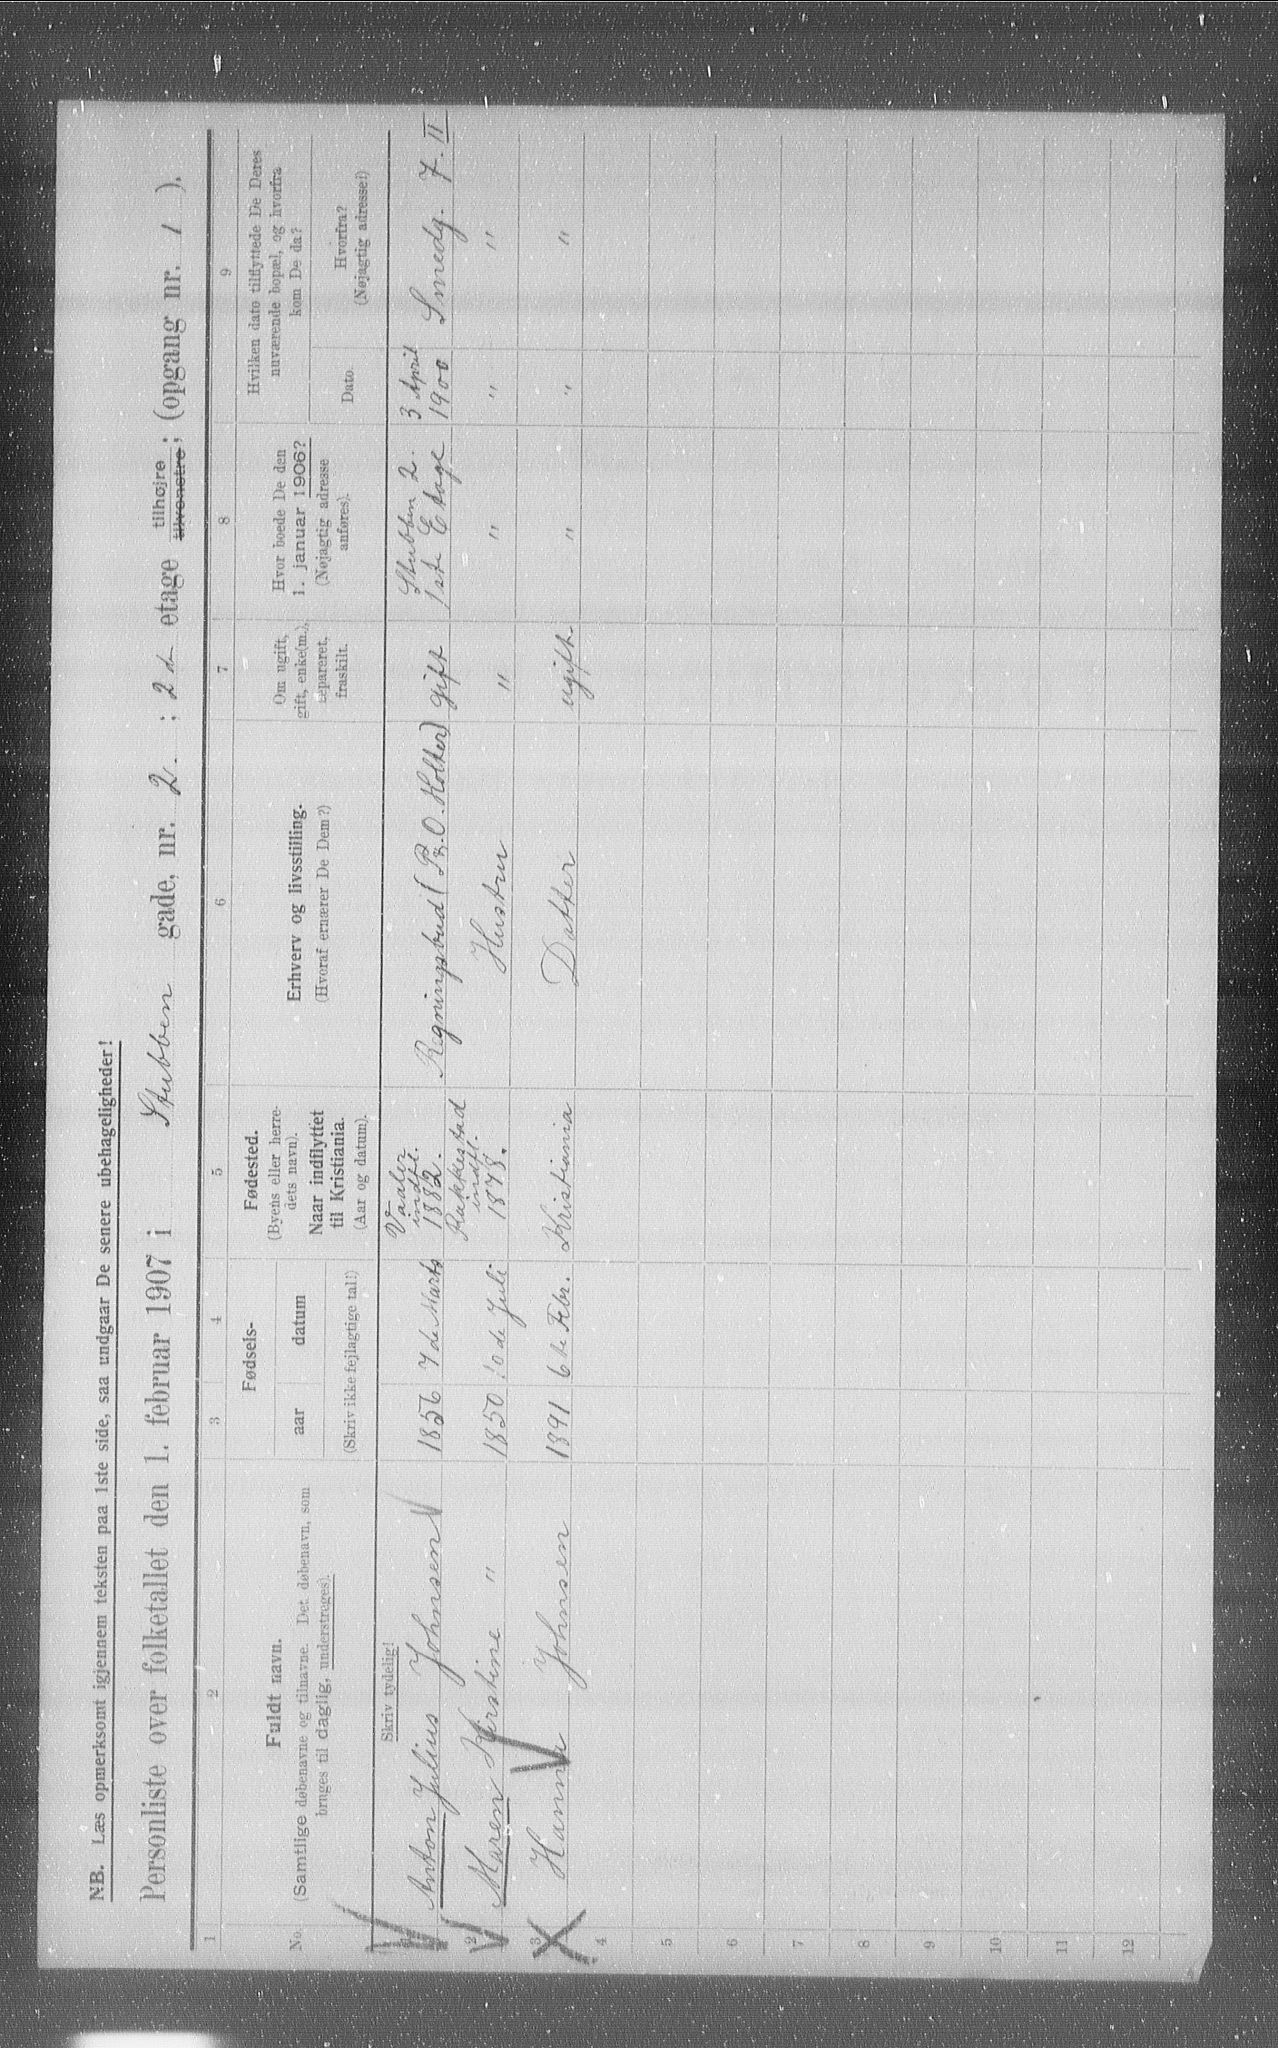 NB. Læs opmerksomt igjennem teksten paa 1ste side, saa undgaar De senere ubehageligheder!
Personliste over folketallet den 1. februar 1907 i Stubben gade, nr. 2. ; 2d etage tilhøjre ; (opgang nr. 1 ).
tilvenstre;
1 2 3 4 5 6 7 8 9
No.
Fuldt navn.
(Samtlige døbenavne og tilnavne. Det døbenavn, som
bruges til daglig, understreges).
Fødsels-
aar datum
(Skriv ikke fejlagtige tal!)
Fødested.
(Byens eller herre-
dets navn).
Naar indflyttet
til Kristiania.
(Aar og datum).
Erhverv og livsstilling.
(Hvoraf ernærer De Dem?)
Om ugift,
gift, enke(m.),
separeret,
fraskilt.
Hvor boede De den
1. januar 1906?
(Nøjagtig adresse
anføres).
Hvilken dato tilflyttede De Deres
nuværende bopæl, og hvorfra
kom De da?
Dato.
Hvorfra?
(Nøjagtig adresse!)
Skriv tydelig!
1 Anton Julius Johnsen 1856 7de Marts Vaaler indfl. 1882. Regningsbud (P. O. Kolker) gift Stubben 2. 1ste Etage 3 April 1900 Smedg. 7. II
2 Maren Kirstine " 1850 10de Juli Rakkestad indfl. 1878. Hustru " " " "
3 Hanna Johnsen 1891 6te Febr. Kristiania Datter ugift " " "
4
5
6
7
8
9
10
11
12